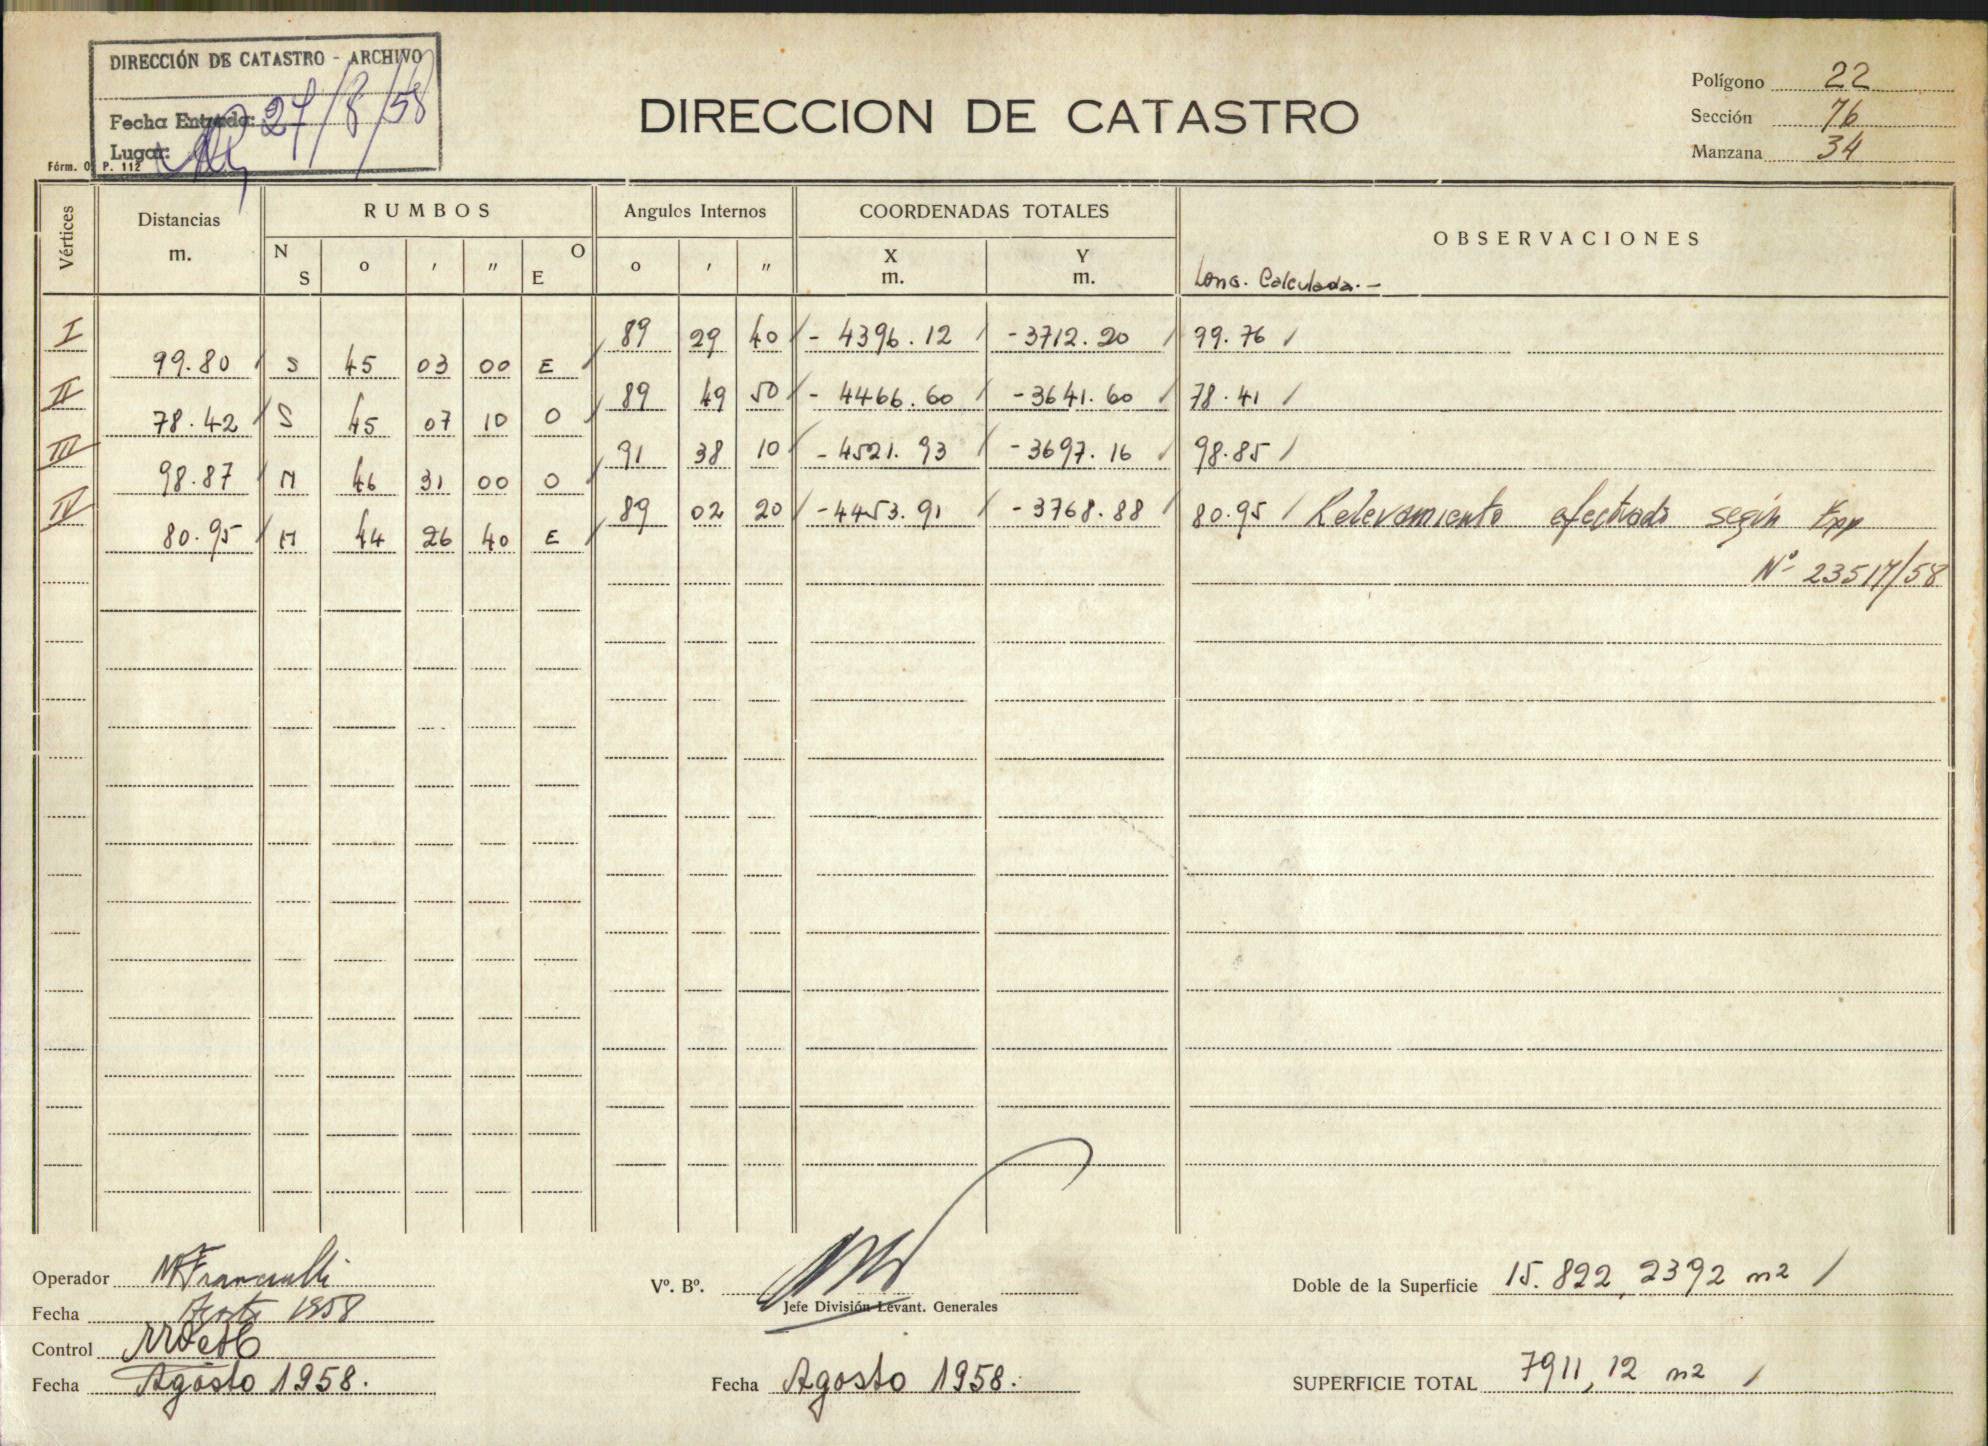 DIRECCIÓN DE CATASTRO - ARCHIVO
Fecha Entrada: 27/8/58
Lugar:
Fórm. O. P. 112
DIRECCION DE CATASTRO
Polígono 22
Sección 76
Manzana 34
Vértices Distancias m. RUMBOS N S o ' " O E Angulos Internos o ' " COORDENADAS TOTALES X m. Y m. OBSERVACIONES
Long. Calculada.-
I 89 29 40 - 4396.12 -3712.20 99.76
99.80 S 45 03 00 E
II 89 49 50 - 4466.60 -3641.60 78.41
78.42 S 45 07 10 O
III 91 38 10 - 4521.93 -3697.16 98.85
98.87 N 46 31 00 O
IV 89 02 20 -4453.91 -3768.88 80.95 Relevamiento efectuado según Exp
80.95 N 44 26 40 E
Nº 23517/58
Operador
Fecha Agosto 1958
Control
Fecha Agosto 1958.
Vº. Bº.
Jefe División Levant. Generales
Fecha Agosto 1958.
Doble de la Superficie 15.822,2392 m2
SUPERFICIE TOTAL 7911,12 m2